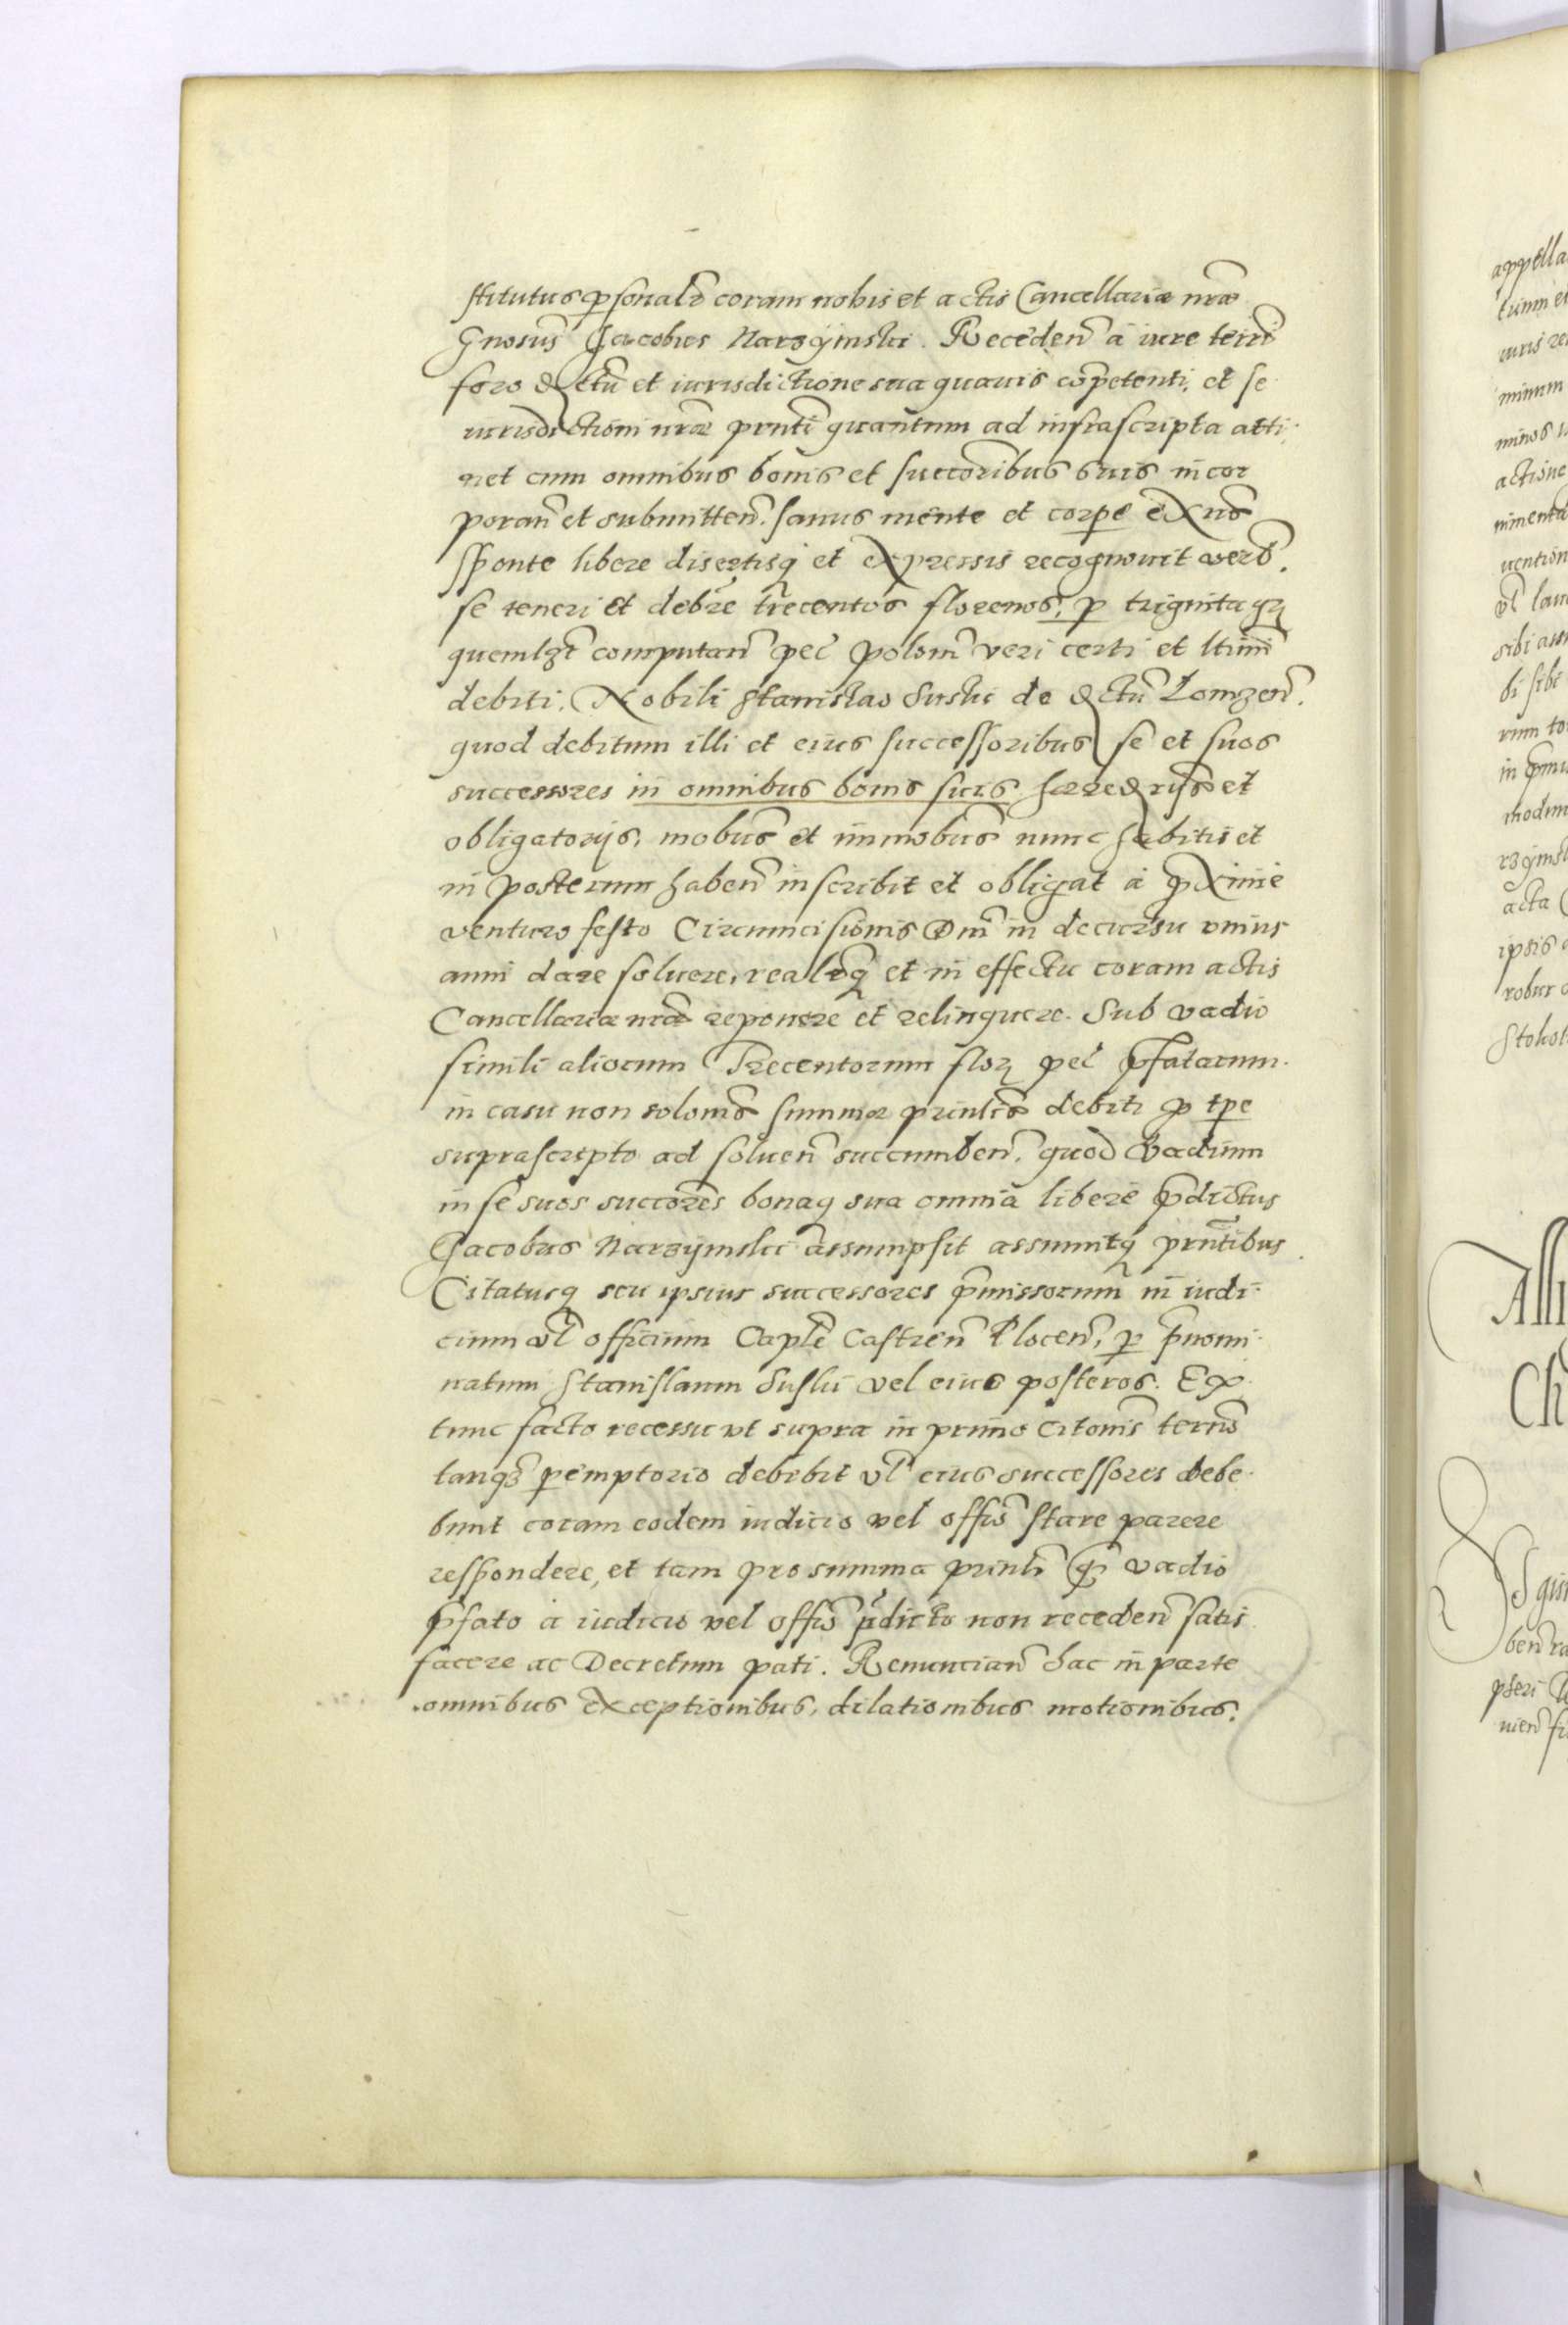 stitutus psonalr coram nobis et actis Cancellariæ nræ
Gnosus Jacobus Narzÿmski. Receden a iure terri
foro dctu et iurisdictione sua quauis competenti, et se
iurisdictioni nræ prnti quantum ad infrascripta atti:
net cum omnibus bonis et succoribus suis incor
poran et submitten. sanus mente et corpe exns
sponte libere disertisq et expressis recognouit verb.
se teneri et debre trecentos florenos, p triginta gr
quemlzt computan pec polom veri certi et ltimi
debiti. Nobili Stanislao Suski de dctu Lomzen.
quod debitum illi et eius successoribus se et suos
successores in omnibus bonis suis hæredrijs et
obligatorijs, mobus et immobus nunc habitis et
in posterum haben inscribit et obligat a pxime
venturo festo Circumcisionis Dni in decursu vnius
anni dare soluere, realrq et in effectu coram actis
Cancellariæ nræ reponere et relinquere. Sub vadio
simili aliorum Trecentorum flor pec pfatarum.
in casu non solonis summæ prinlis debiti p tpe
suprascripto ad soluen succumben. quod vadium
in se suos succores bonaq sua omnia libere pdictus
Jacobus Narzÿmski assumpsit assumitq prntibus
Citatusq seu ipsius successores pmissorum in iudi:
cium vl officium Caple Castren Plocen, p pnomi:
natum Stanislaum Suski vel eius posteros. Ex
tunc facto recessu vt supra in primo citonis termo
tanq pemptorio debebit vl eius successores debe:
bunt coram eodem iudicio vel offio stare parere
respondere, et tam pro summa prinli q vadio
pfato a iudicio vel offio pdicto non receden satis
facere ac Decretum pati. Renuncian hac in parte
omnibus exceptionibus, dilationibus motionibus.
appella
tumm et
iuris re
minum
minos
actione
nimenta
uention
vl lau
sibi
bi sibi
rum to
in pmi
modum
rzÿms
acta
ipsis
robur
Stokol
Alli
Ch
pteri